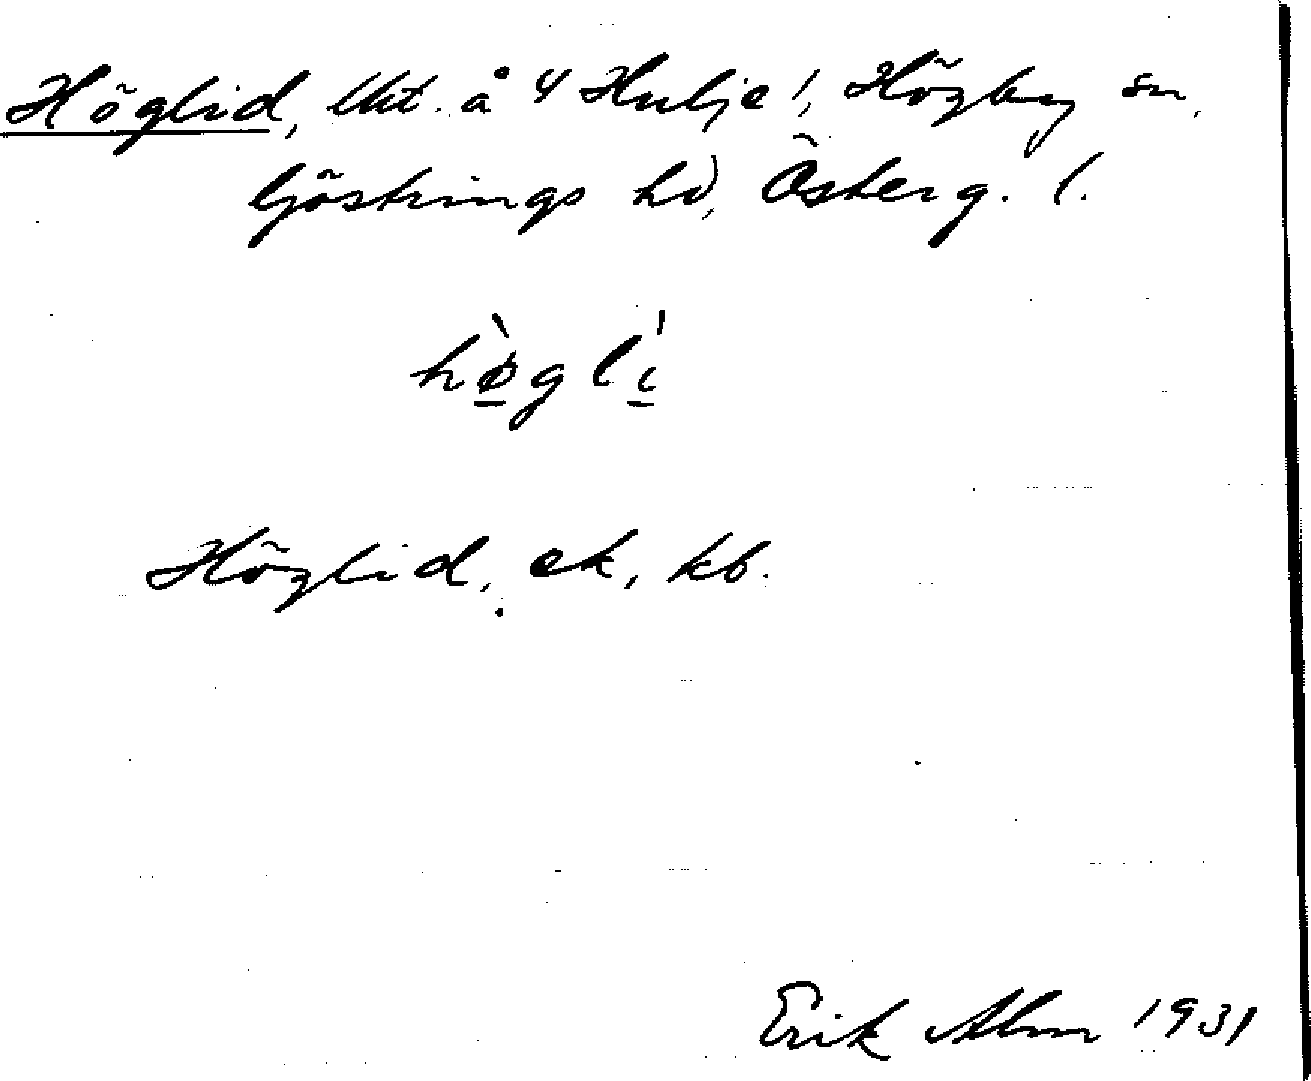 Höglid, lht. å 4 Hulje 1, Högby sn,
Göstrings hd, Österg. l.
hø̀glí
Höglid, ek, kb.
Erik Alm 1931